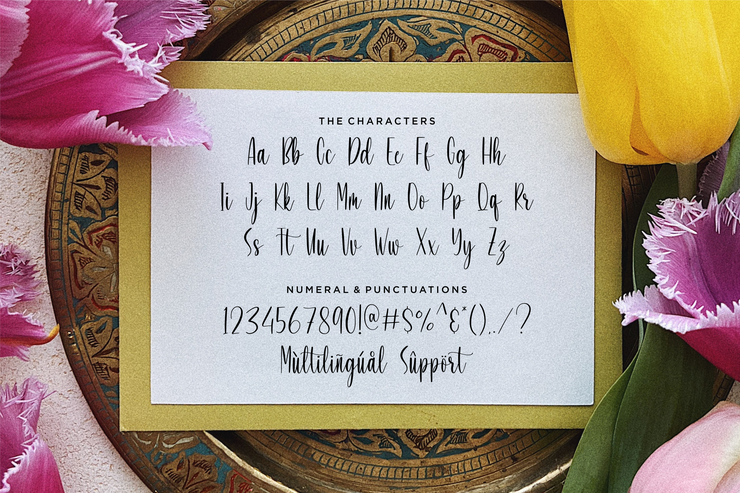 THE CHARACTERS
Aa Bb Cc Dd Ee Ff Gg Hh
Ii Jj Kk Ll Mm Nn Oo Pp Qq Rr
Ss Tt Uu Vv Ww Xx Yy Zz
NUMERAL & PUNCTUATIONS
1234567890!@#$%^&*().,/?
Mùltilíñgúål Sûppört